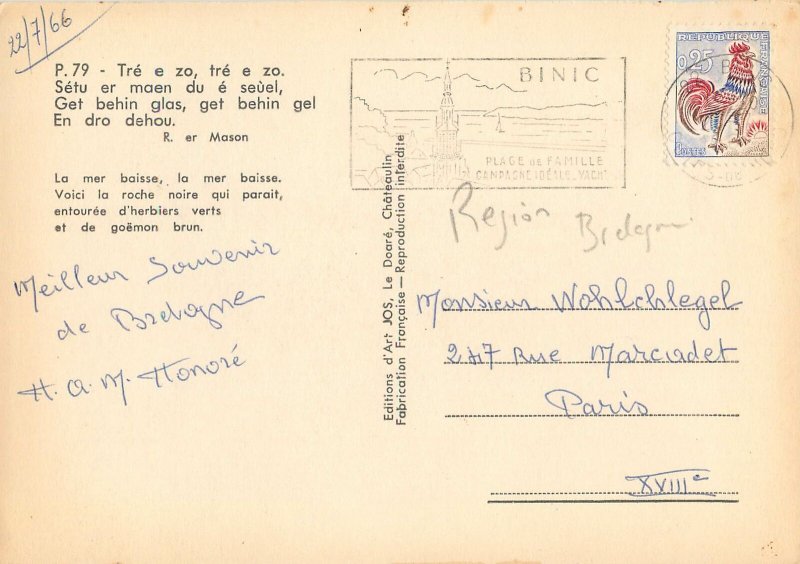 22/7/66
P.79 - Tré e zo, tré e zo.
Sétu er maen du é seùel,
Get behin glas, get behin gel
En dro dehou.
R. er Mason
La mer baisse, la mer baisse.
Voici la roche noire qui parait,
entourée d'herbiers verts
et de goëmon brun.
Meilleur Souvenir
de Bretagne
H. a. M. Honoré
Editions d'Art JOS, Le Doaré, Châteaulin
Fabrication Française — Reproduction interdite
BINIC
PLAGE DE FAMILLE
CAMPAGNE IDÉALE - YACHT
REPUBLIQUE
FRANÇAISE
0,25
POSTES
Région Bretagne
Monsieur Wohlchlegel
247 Rue Marcadet
Paris
XVIIIe